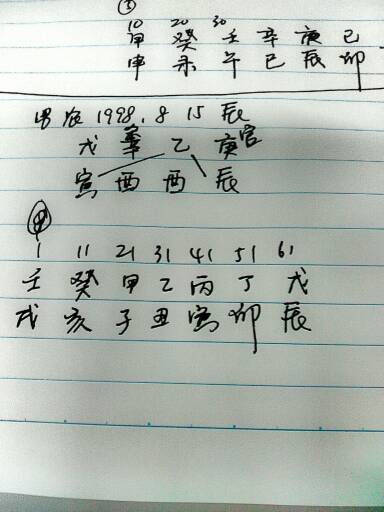 ③
10 20 30
甲 癸 壬 辛 庚 己
申 未 午 巳 辰 卯
男 农 1998.8 15 辰
戊 辛 乙 庚官
寅 酉 酉 辰
1 11 21 31 41 51 61
壬 癸 甲 乙 丙 丁 戊
戌 亥 子 丑 寅 卯 辰